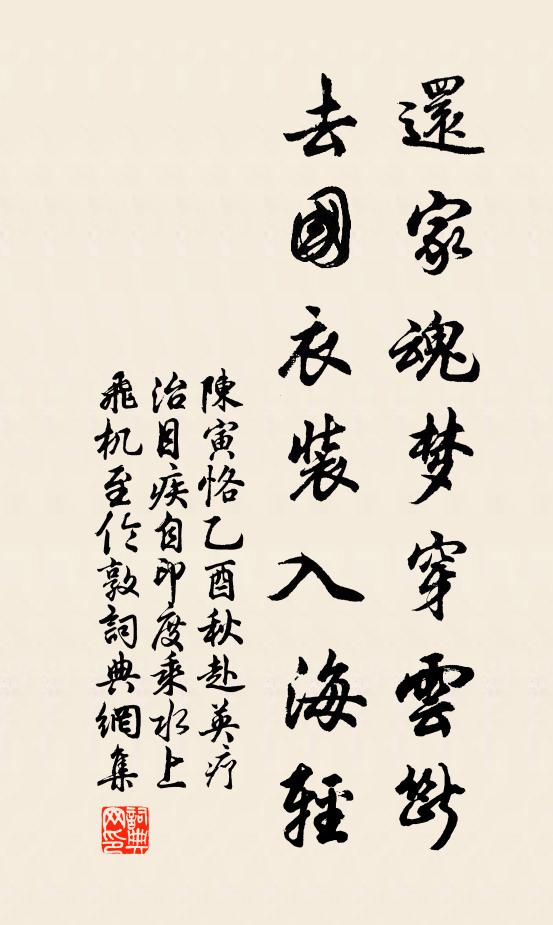 還家魂梦穿雲斷
去國衣裝入海輕
陳寅恪乙酉秋赴英疗
治目疾自印度乘水上
飛机至伦敦詞典網集
詞典网印